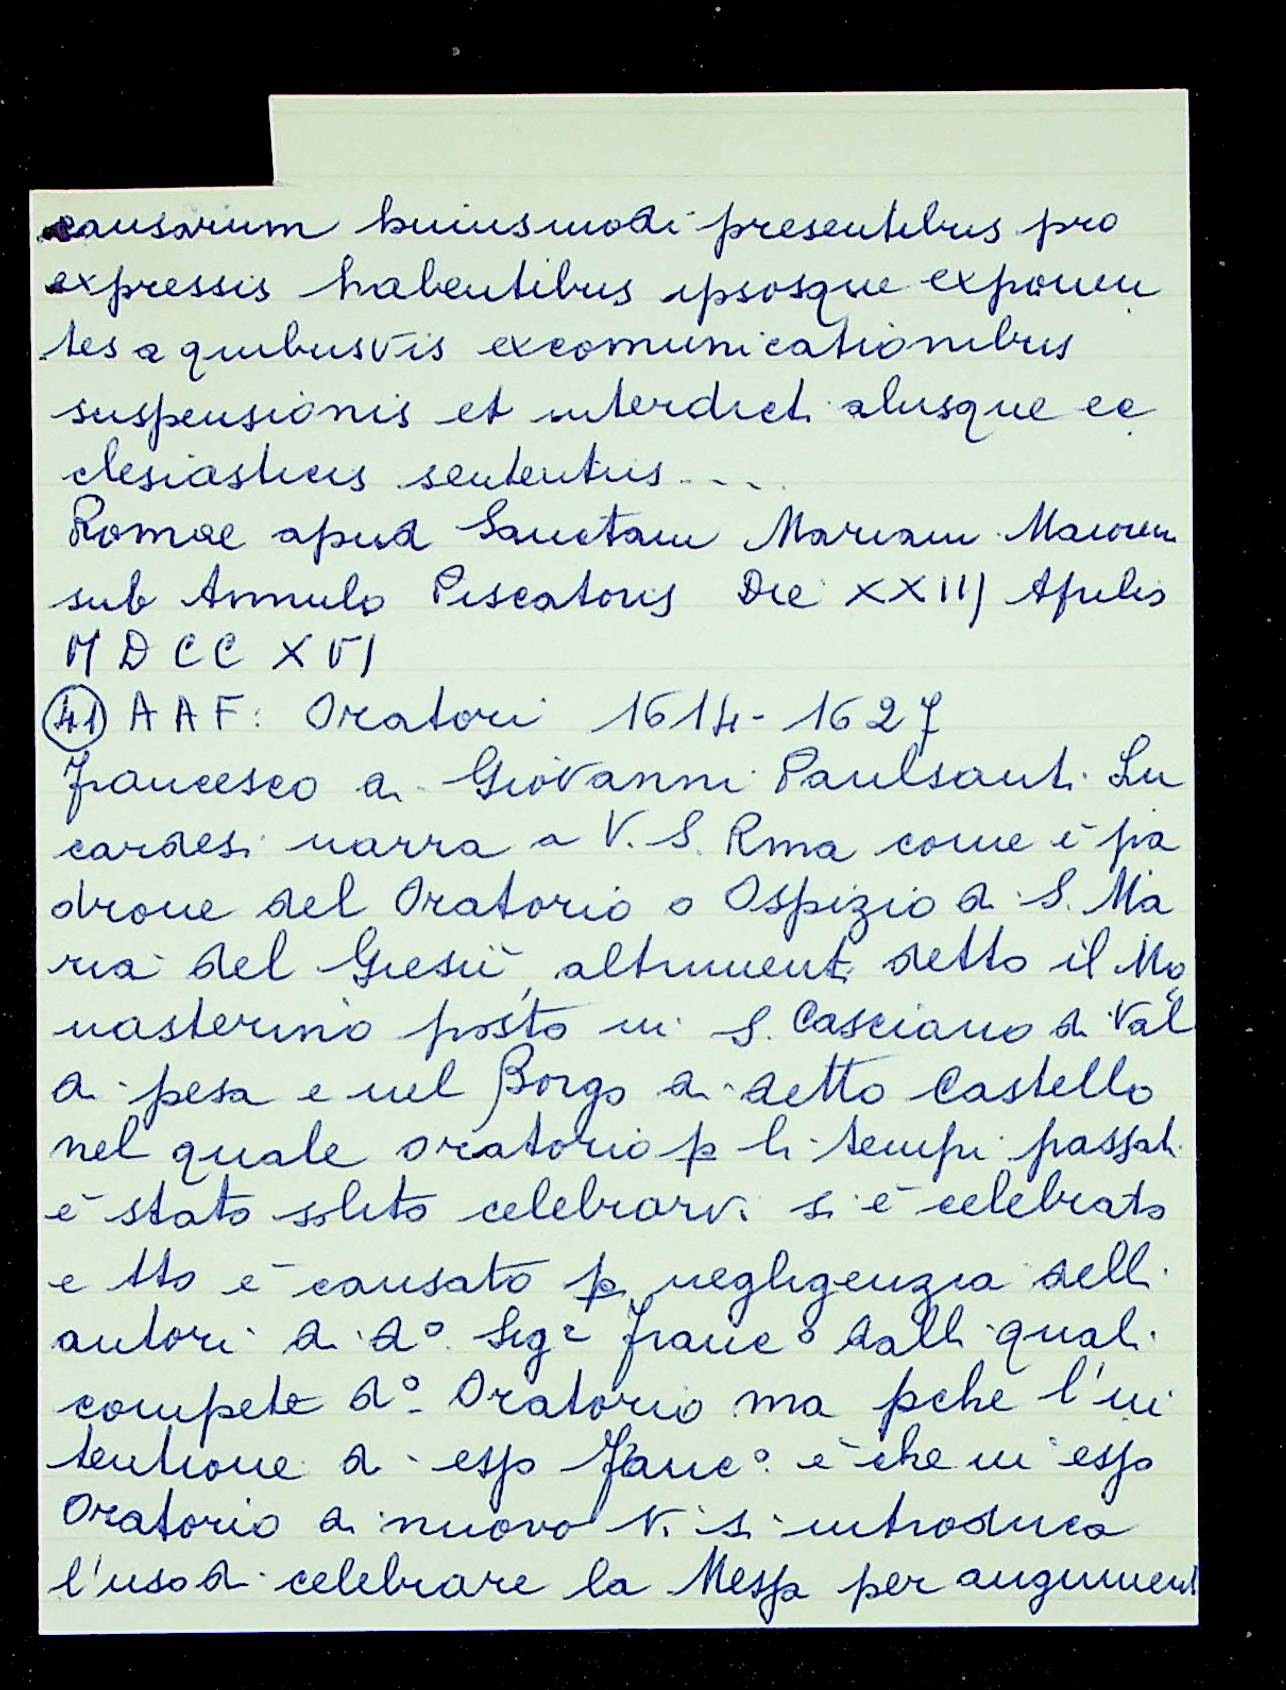 causarum huiusmodi presentibus pro
expressis habentibus ipsosque exponen
tes a quibusvis excomunicationibus
suspensionis et interdicti aliisque ec
clesiasticis sententiis....
Romae apud Sanctam Mariam Maiorem
sub Annulo Piscatoris Die XXIIJ Aprilis
MDCCXVI
(41) AAF: Oratori 1614-1627
Francesco di Giovanni Paulsanti Lu
cardesi narra a V. S. Rma come è pa
drone del Oratorio o Ospizio di S. Ma
ria del Giesù, altriment. detto il Mo
nasterino posto in S. Casciano di Val
di pesa e nel Borgo di detto Castello
nel quale oratorio p li tempi passati
è stato solito celebrarvi si è celebrato
e tto è causato p negligenzia delli
autori di dº Sigr Francº dalli quali
compete dº Oratorio ma pche l'in
tentione di esso Francº è che in esso
Oratorio di nuovo vi si introduca
l'uso di celebrare la Messa per augument